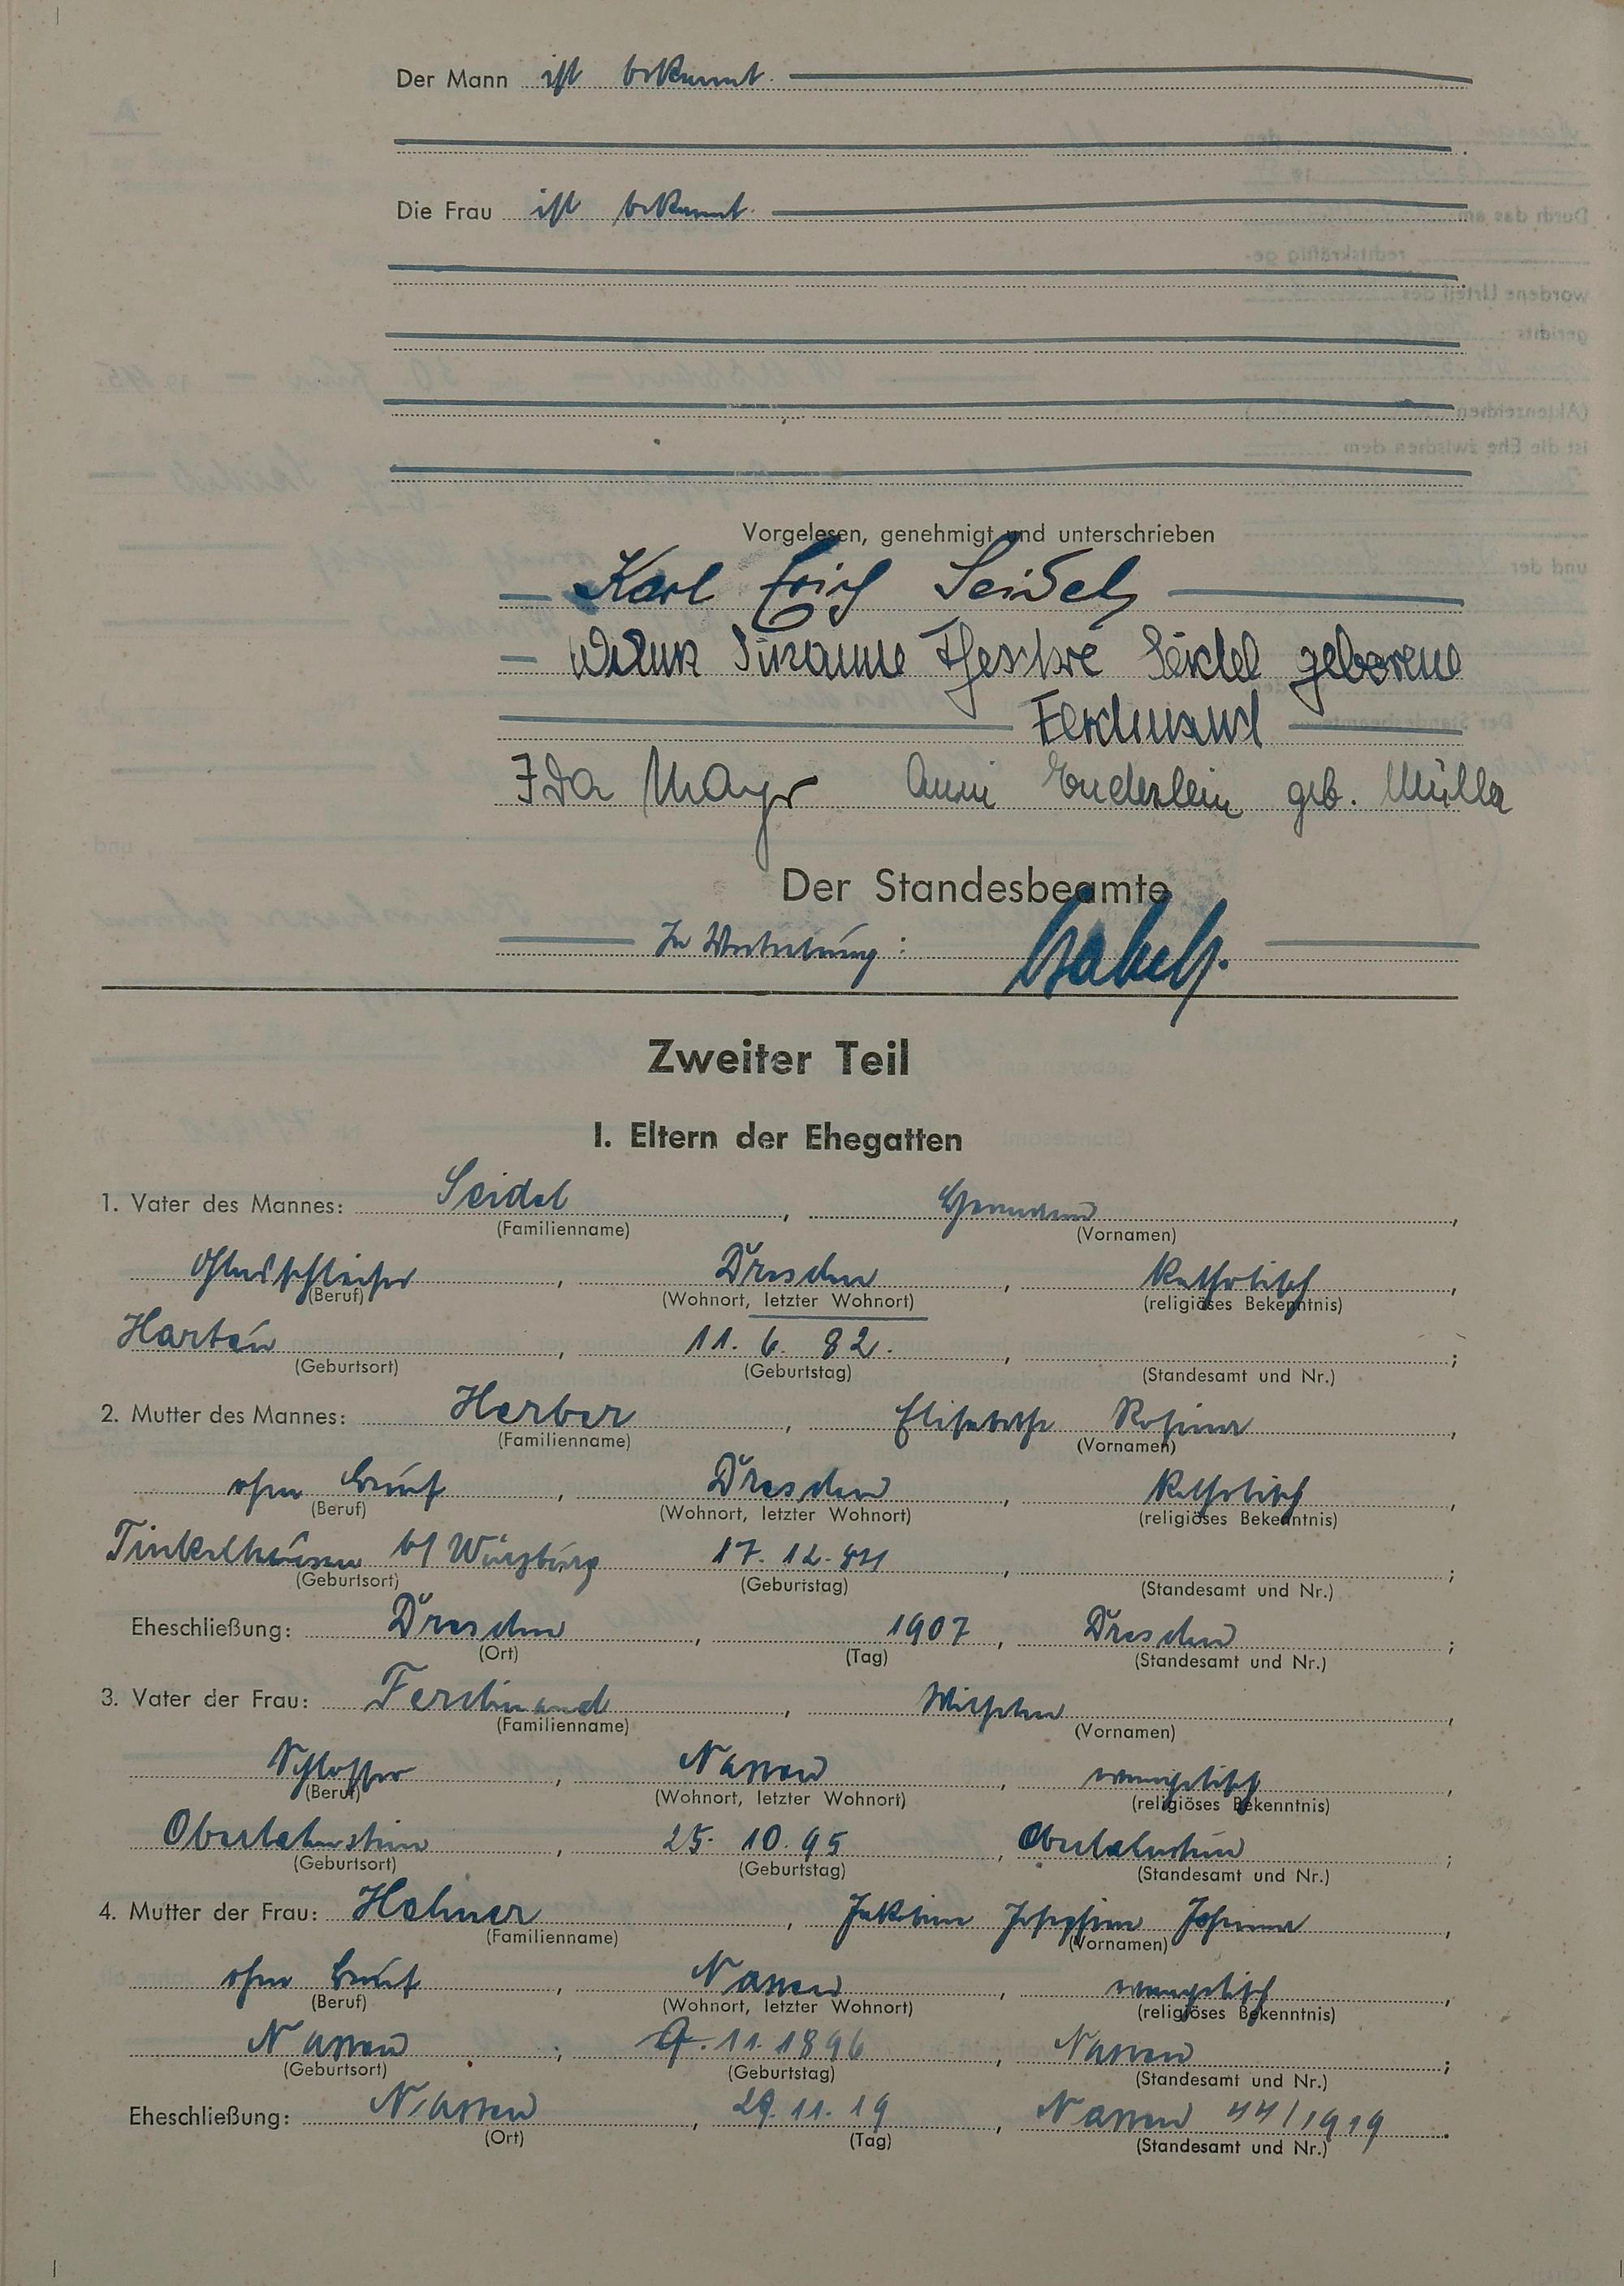 Der Mann ist bekannt.
Die Frau ist bekannt.
Vorgelesen, genehmigt und unterschrieben
Karl Erich Seidel
Susanne Seidel geborene
Ferdinand
Ida Mayr Anni Enderlein geb. Müller
Der Standesbeamte
In Vertretung:
Zweiter Teil
I. Eltern der Ehegatten
1. Vater des Mannes: Seidel,
(Familienname) (Vornamen)
Glasschleifer, Dresden, katholisch,
(Beruf) (Wohnort, letzter Wohnort) (religiöses Bekenntnis)
11. 6. 82. ;
(Geburtsort) (Geburtstag) (Standesamt und Nr.)
2. Mutter des Mannes: Herber, Elisabeth Rosina,
(Familienname) (Vornamen)
ohne Beruf, Dresden, katholisch,
(Beruf) (Wohnort, letzter Wohnort) (religiöses Bekenntnis)
b/ Würzburg 17. 12. ;
(Geburtsort) (Geburtstag) (Standesamt und Nr.)
Eheschließung: Dresden, 1907, Dresden;
(Ort) (Tag) (Standesamt und Nr.)
3. Vater der Frau: Ferdinand, Wilhelm,
(Familienname) (Vornamen)
Schlosser, Nassau, evangelisch,
(Beruf) (Wohnort, letzter Wohnort) (religiöses Bekenntnis)
Oberlahnstein, 25. 10. 95, Oberlahnstein;
(Geburtsort) (Geburtstag) (Standesamt und Nr.)
4. Mutter der Frau: Jakobine Josephine Johanna,
(Familienname) (Vornamen)
ohne Beruf, Nassau, evangelisch,
(Beruf) (Wohnort, letzter Wohnort) (religiöses Bekenntnis)
Nassau, 11. 1896, Nassau;
(Geburtsort) (Geburtstag) (Standesamt und Nr.)
Eheschließung: Nassau, 29. 11. 19, Nassau 44/1919.
(Ort) (Tag) (Standesamt und Nr.)